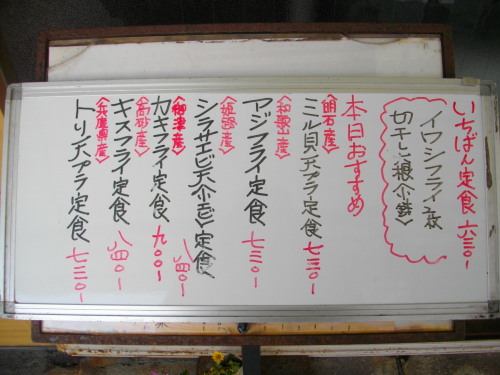 いちばん定食 六三〇ー
イワシフライ二枚
切干し大根小鉢
本日おすすめ
〈明石産〉
ミル貝天プラ定食 七三〇ー
〈和歌山産〉
アジフライ定食 七三〇ー
〈姫路産〉
シラサエビ天 定食 八四〇ー
〈御津産〉
カキフライ定食 九〇〇ー
〈高砂産〉
キスフライ定食 八四〇ー
〈兵庫県産〉
トリ天プラ定食 七三〇ー